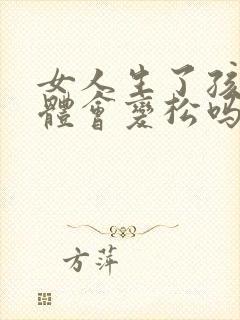 女人生了孩
體會變松吗
方萍